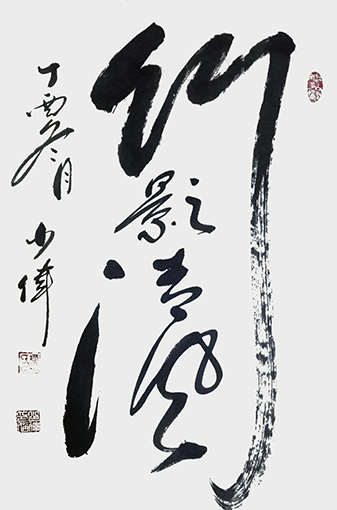 竹影清風
丁酉冬月
少偉